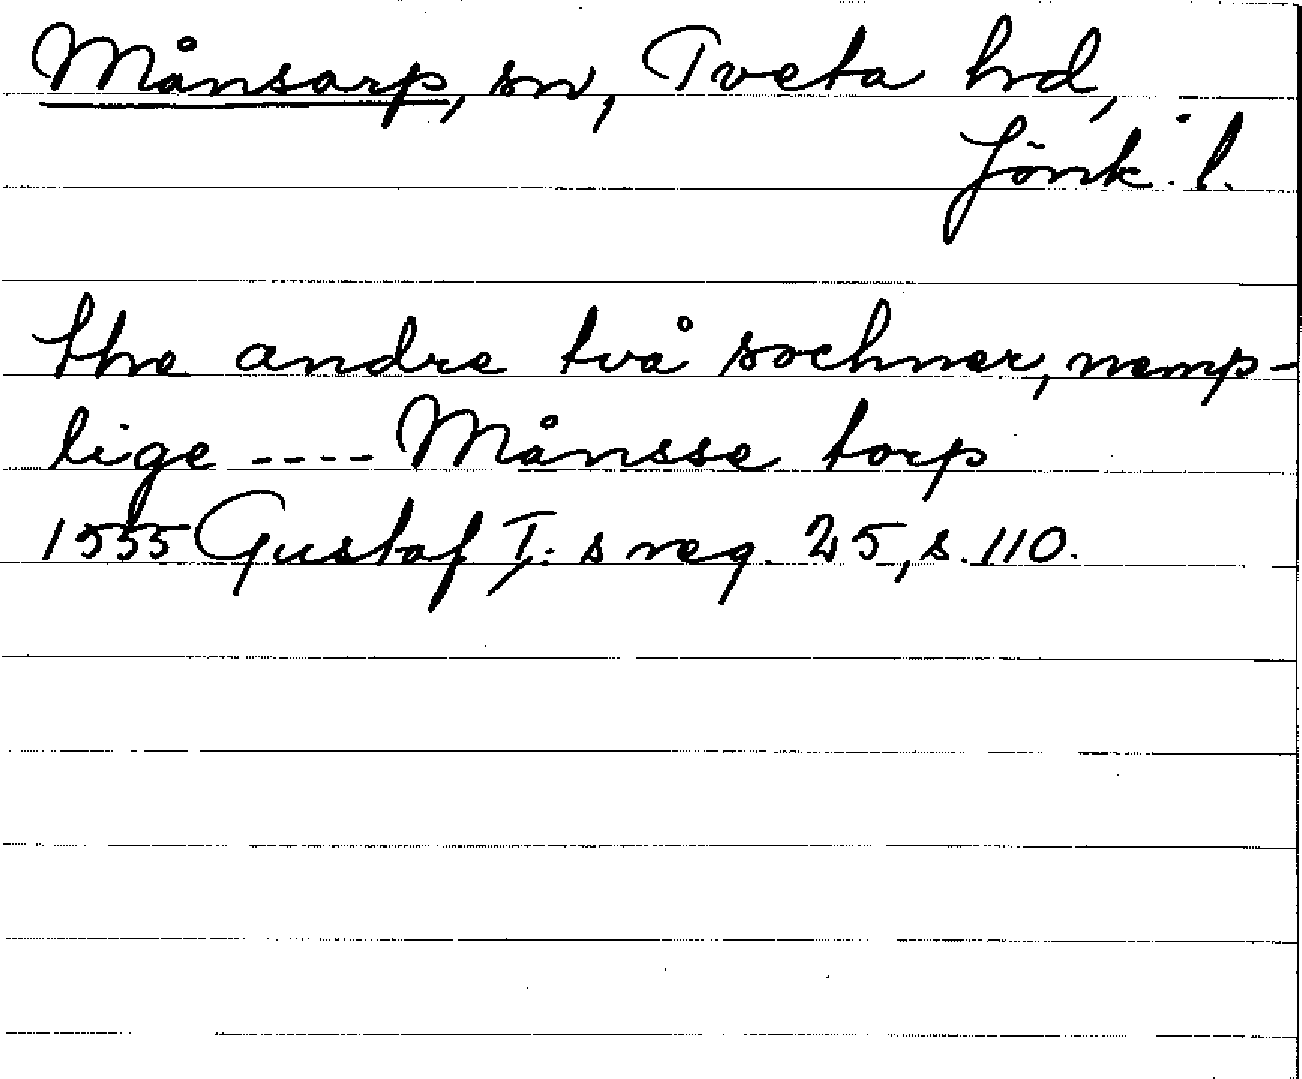 Månsarp, sn, Tveta hd,
Jönk. l.
the andre två sochner, nemp-
lige ---- Månsse torp
1555 Gustaf I:s reg. 25, s. 110.